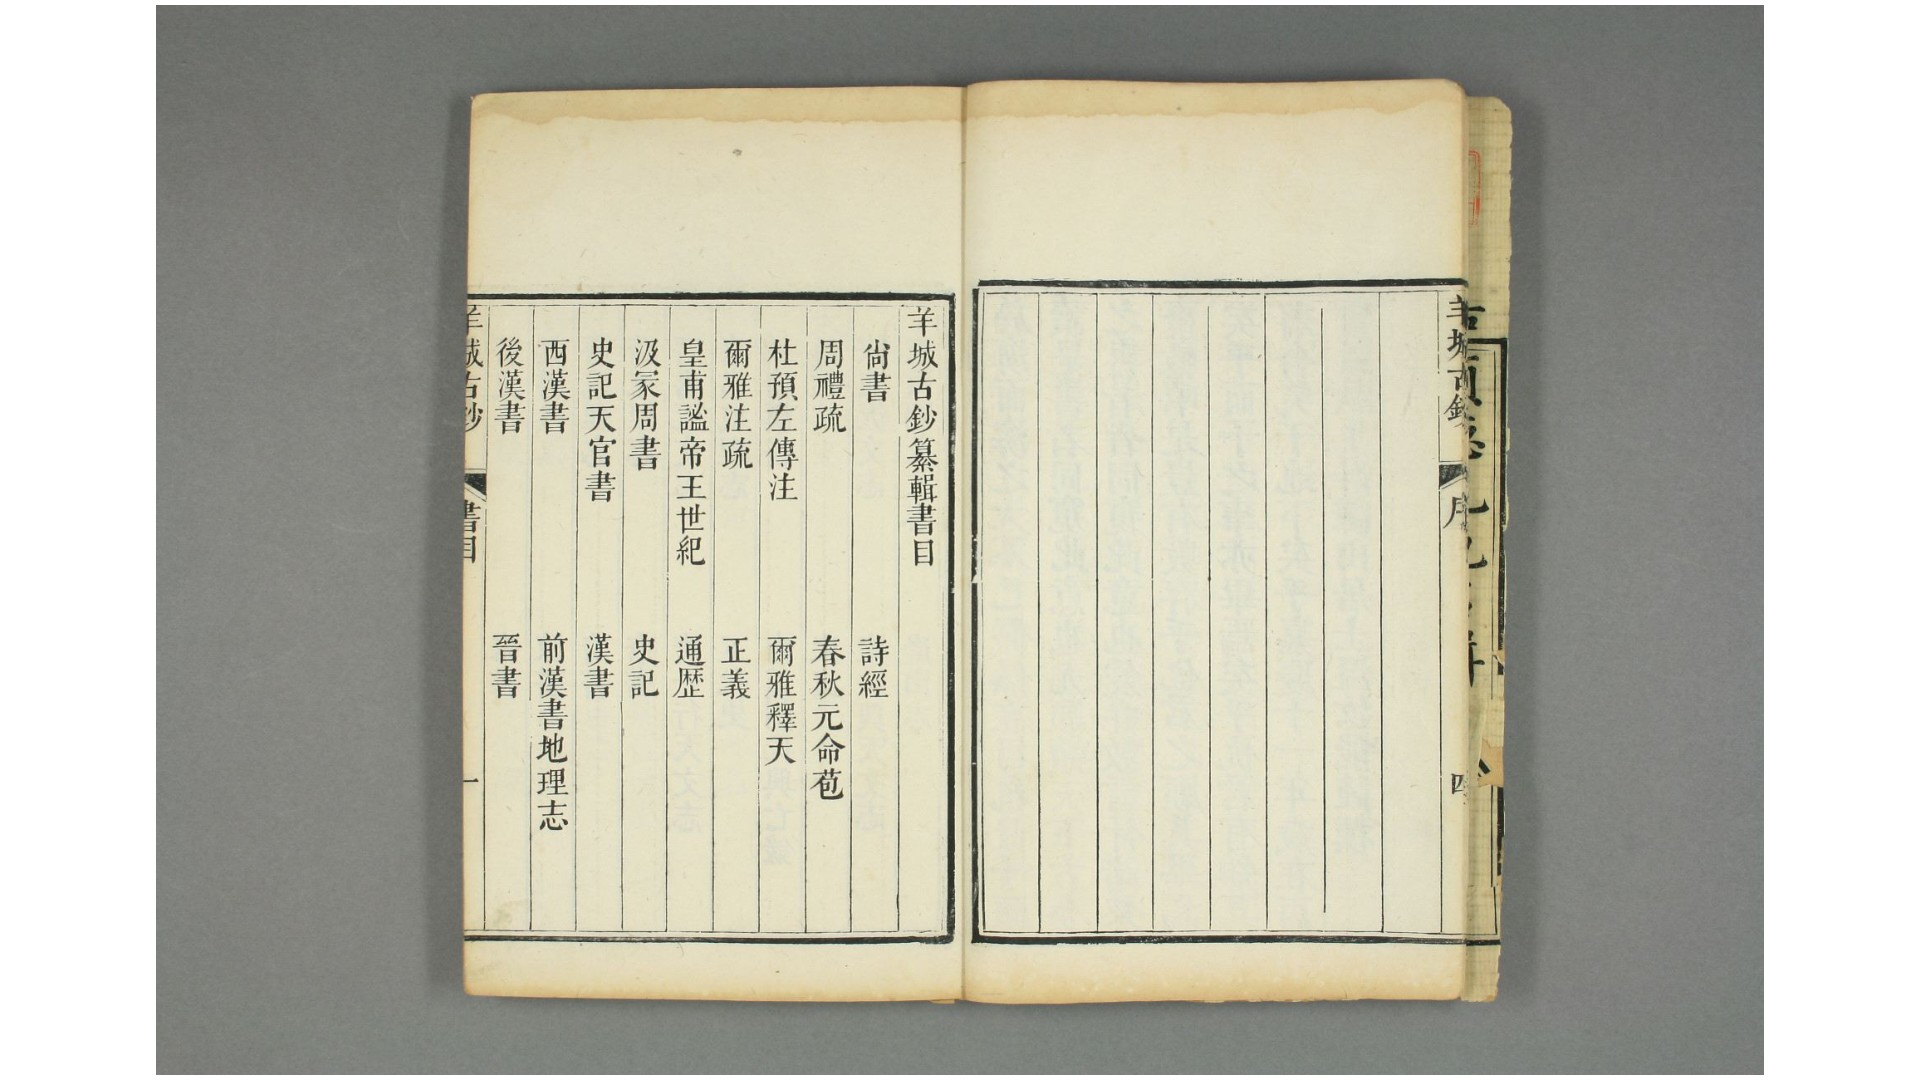 羊城古鈔
序
四
羊城古鈔纂輯書目
尙書
詩經
周禮疏
春秋元命苞
杜預左傳注
爾雅釋天
爾雅注疏
正義
皇甫謐帝王世紀
通歷
汲冢周書
史記
史記天官書
漢書
西漢書
前漢書地理志
後漢書
晉書
羊城古鈔
書目
一